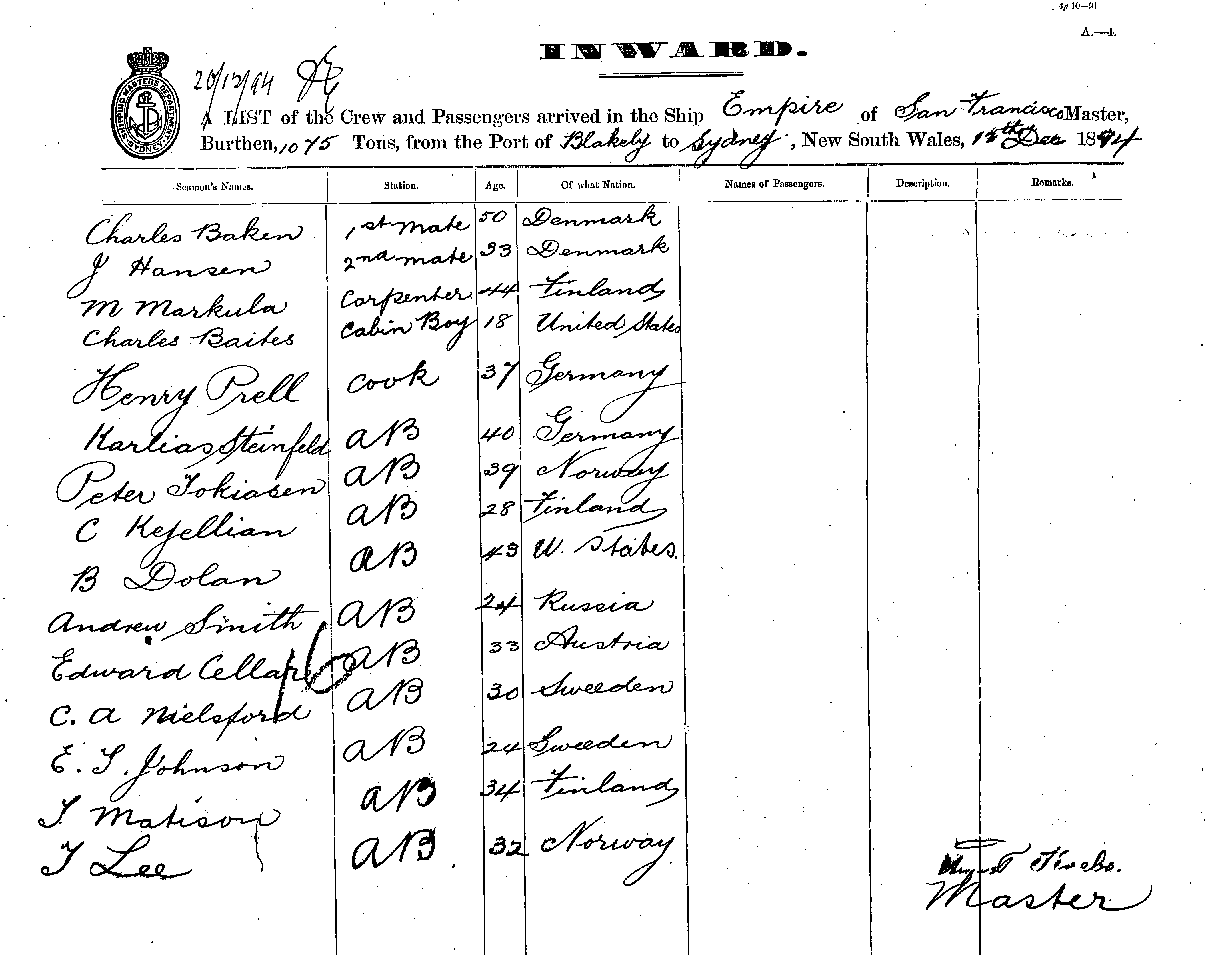 A.—4.
INWARD.
20/12/94
A LIST of the Crew and Passengers arrived in the Ship Empire of San Francisco Master,
Burthen, 1075 Tons, from the Port of Blakely to Sydney, New South Wales, 18th Dec 1894
Seamen's Names. Station. Age. Of what Nation. Names of Passengers. Description. Remarks.
Charles Baken 1st mate 50 Denmark
J Hansen 2nd mate 33 Denmark
M Markula Carpenter 44 Finland
Charles Baites Cabin Boy 18 United States
Henry Prell Cook 37 Germany
Karlias Steinfeld AB 40 Germany
Peter Tokiasen AB 39 Norway
C Kejellian AB 28 Finland
B Dolan AB 43 U. States.
Andrew Smith AB 24 Russia
Edward Cellar AB 33 Austria
16
C. A Nielsford AB 30 Sweeden
E. T. Johnson AB 24 Sweeden
T Matison AB 34 Finland
T Lee AB 32 Norway
Master